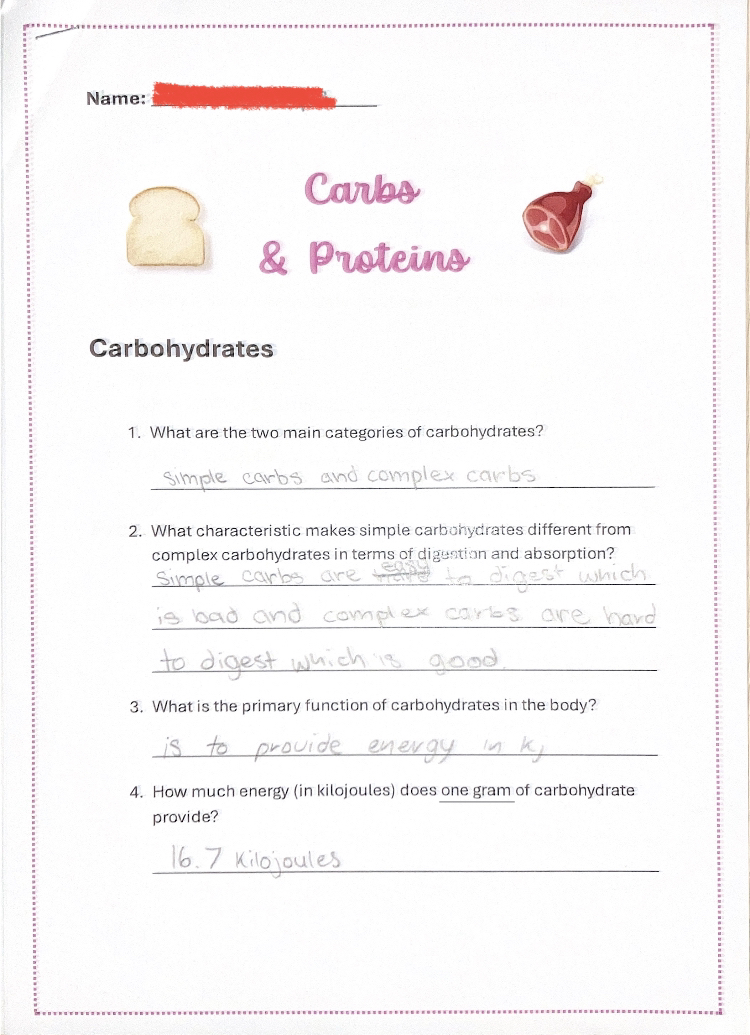 Name:
Carbs
& Proteins
Carbohydrates
1. What are the two main categories of carbohydrates?
simple carbs and complex carbs
2. What characteristic makes simple carbohydrates different from
complex carbohydrates in terms of digestion and absorption?
easy
Simple carbs are hard to digest which
is bad and complex carbs are hard
to digest which is good.
3. What is the primary function of carbohydrates in the body?
is to provide energy in kj
4. How much energy (in kilojoules) does one gram of carbohydrate
provide?
16.7 kilojoules